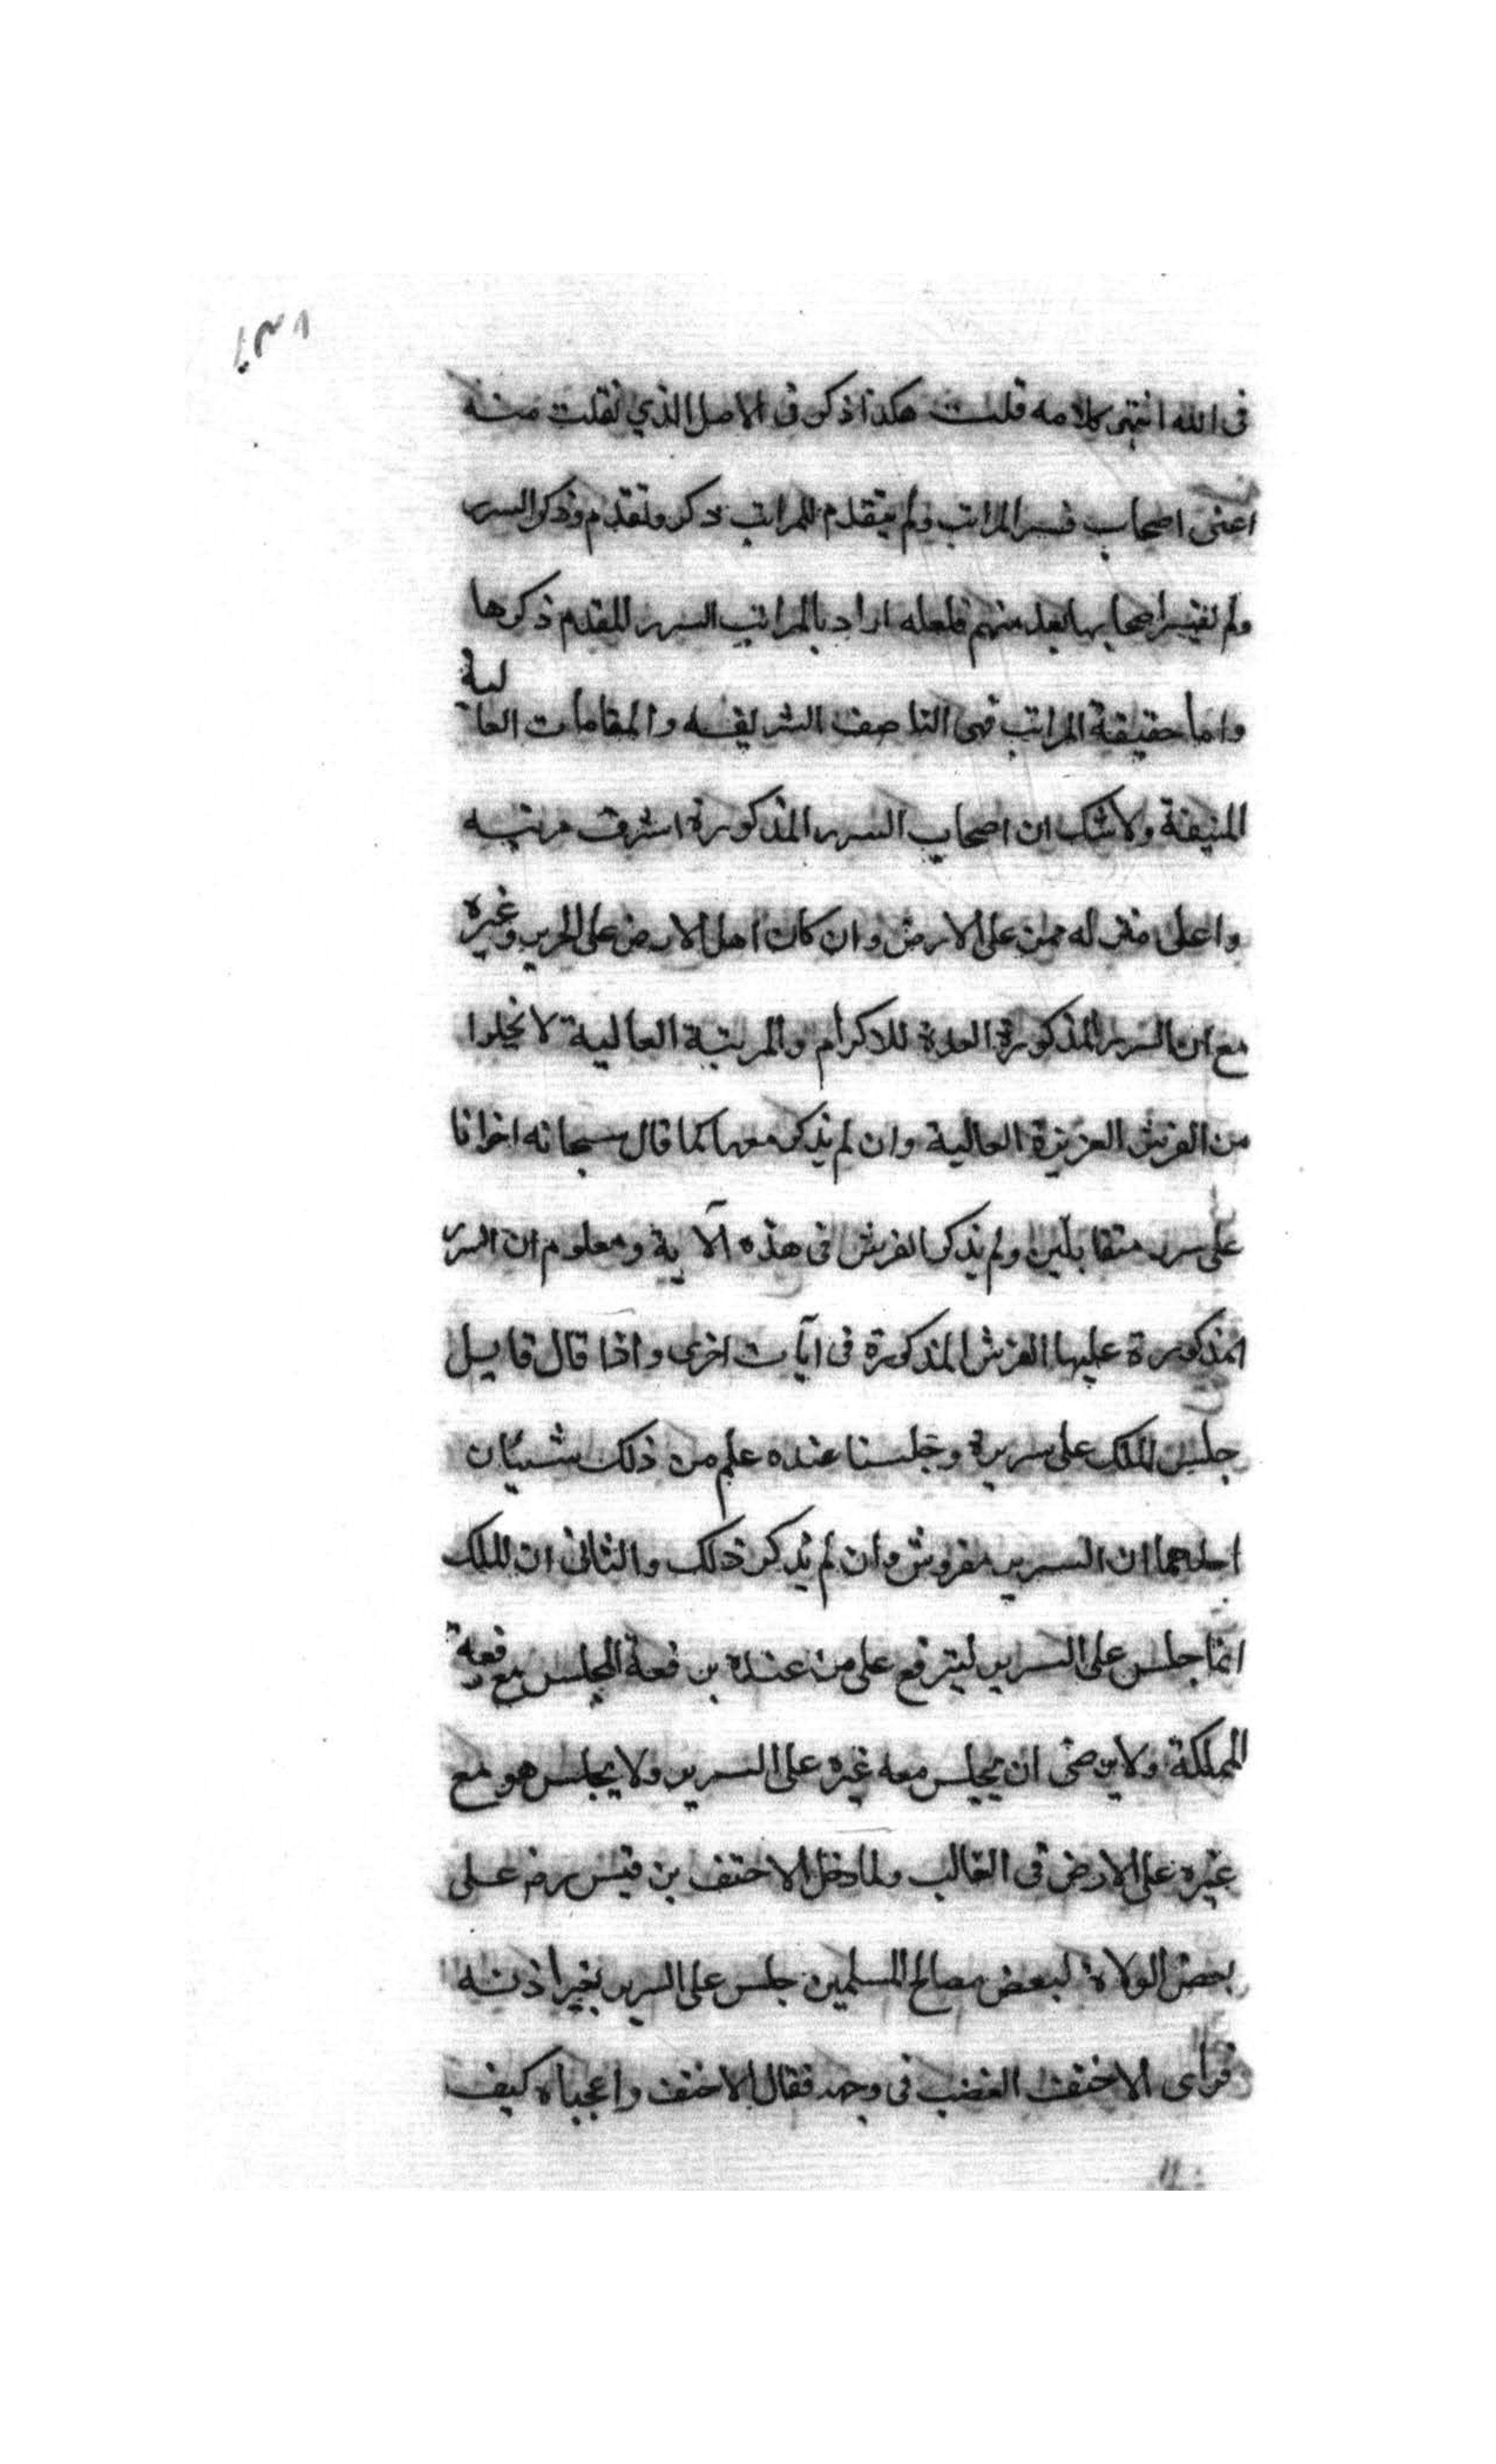 فى الله انتهى كلامه قلت هكذا ذكر فى الاصل الذي نقلت منه
اعنى اصحاب فسر المراتب ولم يتقدم للمراتب ذكر وتقدم ذكر السرر
ولم يفسر اصحابها بعد منهم فلعله اراد بالمراتب السرر المقدم ذكرها
واما حقيقة المراتب فهى المناصف الشريفه والمقامات العالية
المنيفة ولاشك ان اصحاب السرر المذكورة اشرف مرتبه
واعلى منزله ممن على الارض وان كان اهل الارض على الحرير وغيره
مع ان السرر المذكورة المعدة للاكرام والمرتبة العالية لا يخلوا
من الفرش العزيزة العالية وان لم يذكر معها كما قال سبحانه اخوانا
على سرر متقابلين ولم يذكر الفرش فى هذه الآية ومعلوم ان السرر
المذكورة عليها الفرش المذكورة فى آيات اخرى واذا قال قايل
جلس الملك على سريرة وجلسنا عنده علم من ذلك شيئان
احدهما ان السرير مفروش وان لم يذكر ذلك والثانى ان الملك
انما جلس على السرير ليترفع على من عنده برفعة المجلس مع رفعة
المملكة ولا يرضى ان يجلس معه غيره على السرير ولا يجلس هو مع
غيره على الارض فى الغالب ولما دخل الاحنف بن قيس رضه على
بعض الولاة لبعض مصالح المسلمين جلس على السرير بغير اذنه
فراى الاحنف الغضب فى وجهه فقال الاحنف واعجباه كيف